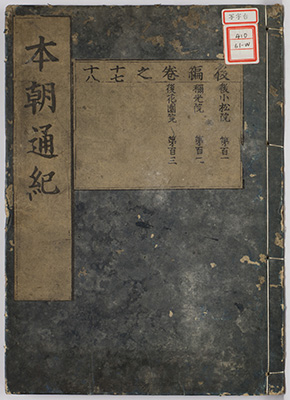 本朝通紀
後編卷之十七十八
後小松院 第百一
稱光院 第百二
後花園院 第百三